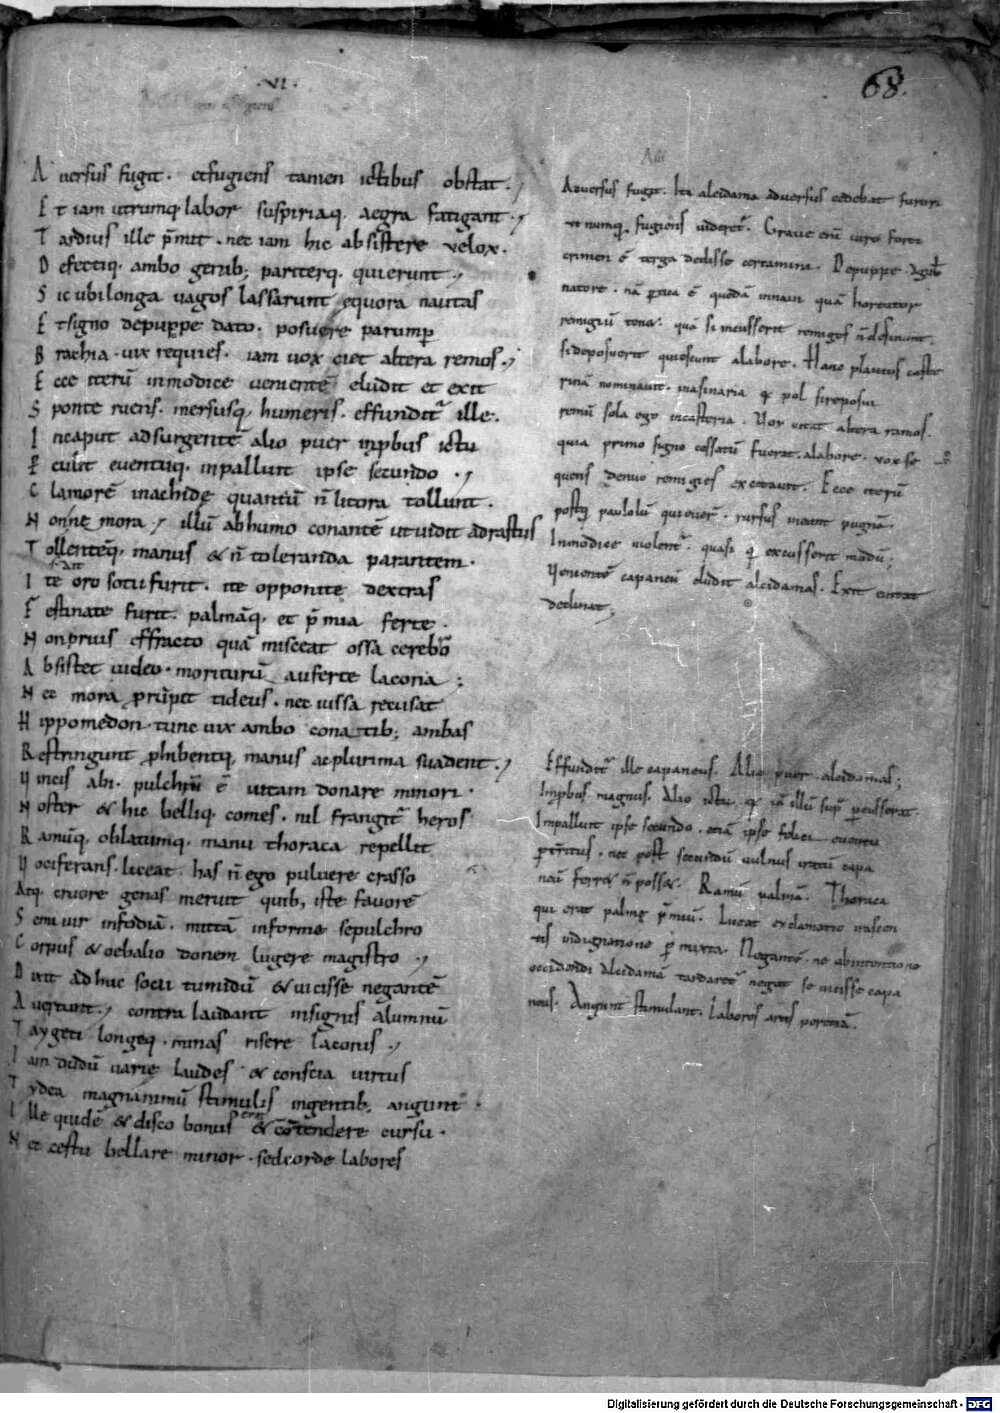 ·VI·
68.
Aversus fugit. et fugiens tamen ictibus obstat.
Et iam utrumq; labor suspiriaq; aegra fatigant.
Tardius ille p̄mit. nec iam hic absistere velox.
Defectiq; ambo genib; pariterq; quierunt.
Sic ubi longa vagos lassarunt equora nautas
Et signo de puppe dato. posuere parump̄
Brachia. vix requies. iam vox ciet altera remos.
Ecce iterū inmodice venientē eludit et exit
Sponte ruens. mersusq; humeris. effundit᷑ ille.
In caput adsurgentē alio puer inp̄bus ictu
Perculit eventuq; inpalluit ipse secundo.
Clamorē inachidę quantū n̄ litora tollunt.
Non nemora, illū ab humo conantē ut vidit adrastus
Tollenteq; manus & n̄ toleranda parantem.
Ite oro socii furit. ite opponite dextras
Festinate furit. palmāq; et p̄mia ferte.
Non prius effracto quā misceat ossa cerebro
Absistet video. moriturū auferte laconia:
Nec mora prūpit tideus. nec iussa recusat
Hippomedon. tunc vix ambo conatib; ambas
Restringunt p̄hibentq; manus ac plurima suadent.
Vincis abi. pulchrū ē vitam donare minori.
Noster & hic belliq; comes. nil frangit᷑ heros
Ramūq; oblatumq; manu thoraca repellit
Vociferans. liceat. has n̄ ego pulvere crasso
Atq; cruore genas meruit quib; iste favorē
Semivir infodiā. mittā informe sepulchro
Corpus & oebalio donem lugere magistro.
Dixit ad huc socii tumidū & vicisse negantē
Avertunt. contra laudant insignis alumnū
Taygeti longeq; minas risere lacones.
Iam dudū varie laudes & conscia virtus
Tydea magnanimū stimulis ingentib; angunt.
Ille quidē & disco bonus & contendere cursu.
Nec cestu bellare minor. sed corde labores
Adversus fugit. Ita alcidama adversus cedebat furori
ut numq; fugiens videret᷑. Grave enī viro forti
crimen ē terga dedisse certamina. De puppe. a gub̄
natore. nā portua ē quedā in navi quā hortator
remigiū tenet. quā si incusserit remiges n̄ desinunt.
si deposuerit quiescunt a labore. Hanc plautus caste
riam nominavit. in asinaria
remū sola ego in casteria. Vox ciet altera ramos.
quia primo signo cessatū fuerat. a labore. vox se
quens denuo remiges excitavit. Ecce iterū
postq; paululū quiever̄. rursus ineunt pugnā.
Inmodice violent᷑. quasi q̄ excusserit modū;
Venientē capaneū eludit alcidamas. Exit evitat
declinat;
Effundit᷑ ille capaneus. Alio puer. alcidamas;
Inp̄bus magnus. Alio ictu. q̄ iā illū sup̄ percusserat.
Inpalluit ipse secundo. etiā ipse felici eventu
p̄territus. nec post secundū vulnus iratū capa
neū ferre n̄ posset. Ramū palmā. Thoraca
qui erat palmę p̄miū. Liceat exclamatio irascen
tis indignatione p̄mixta. Negantē. ne ab intentione
occidendi alcidamā tardaret᷑ negat se vicisse capa
neus. Angunt stimulant. Labores